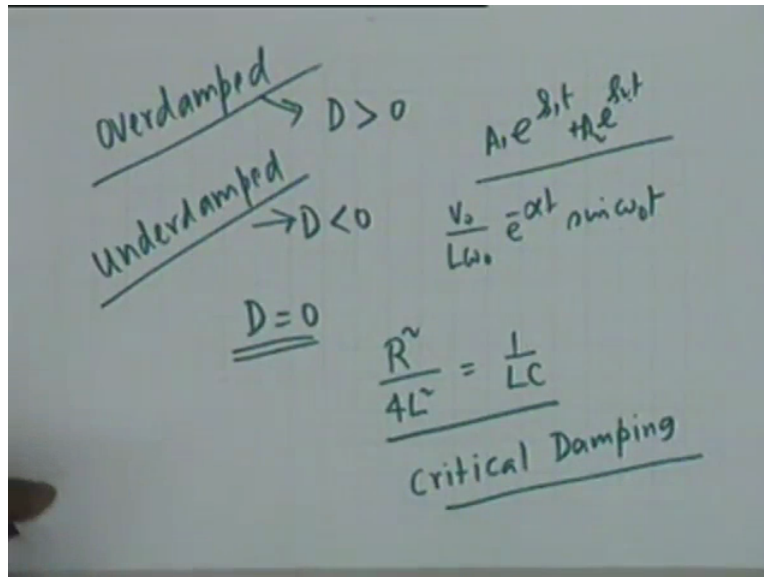 overdamped → D > 0
A₁ e^{s₁t} + A₂ e^{s₂t}
underdamped → D < 0
V₀/Lω₀ e^{-αt} sin ω₀t
D = 0
R²/4L² = 1/LC
Critical Damping